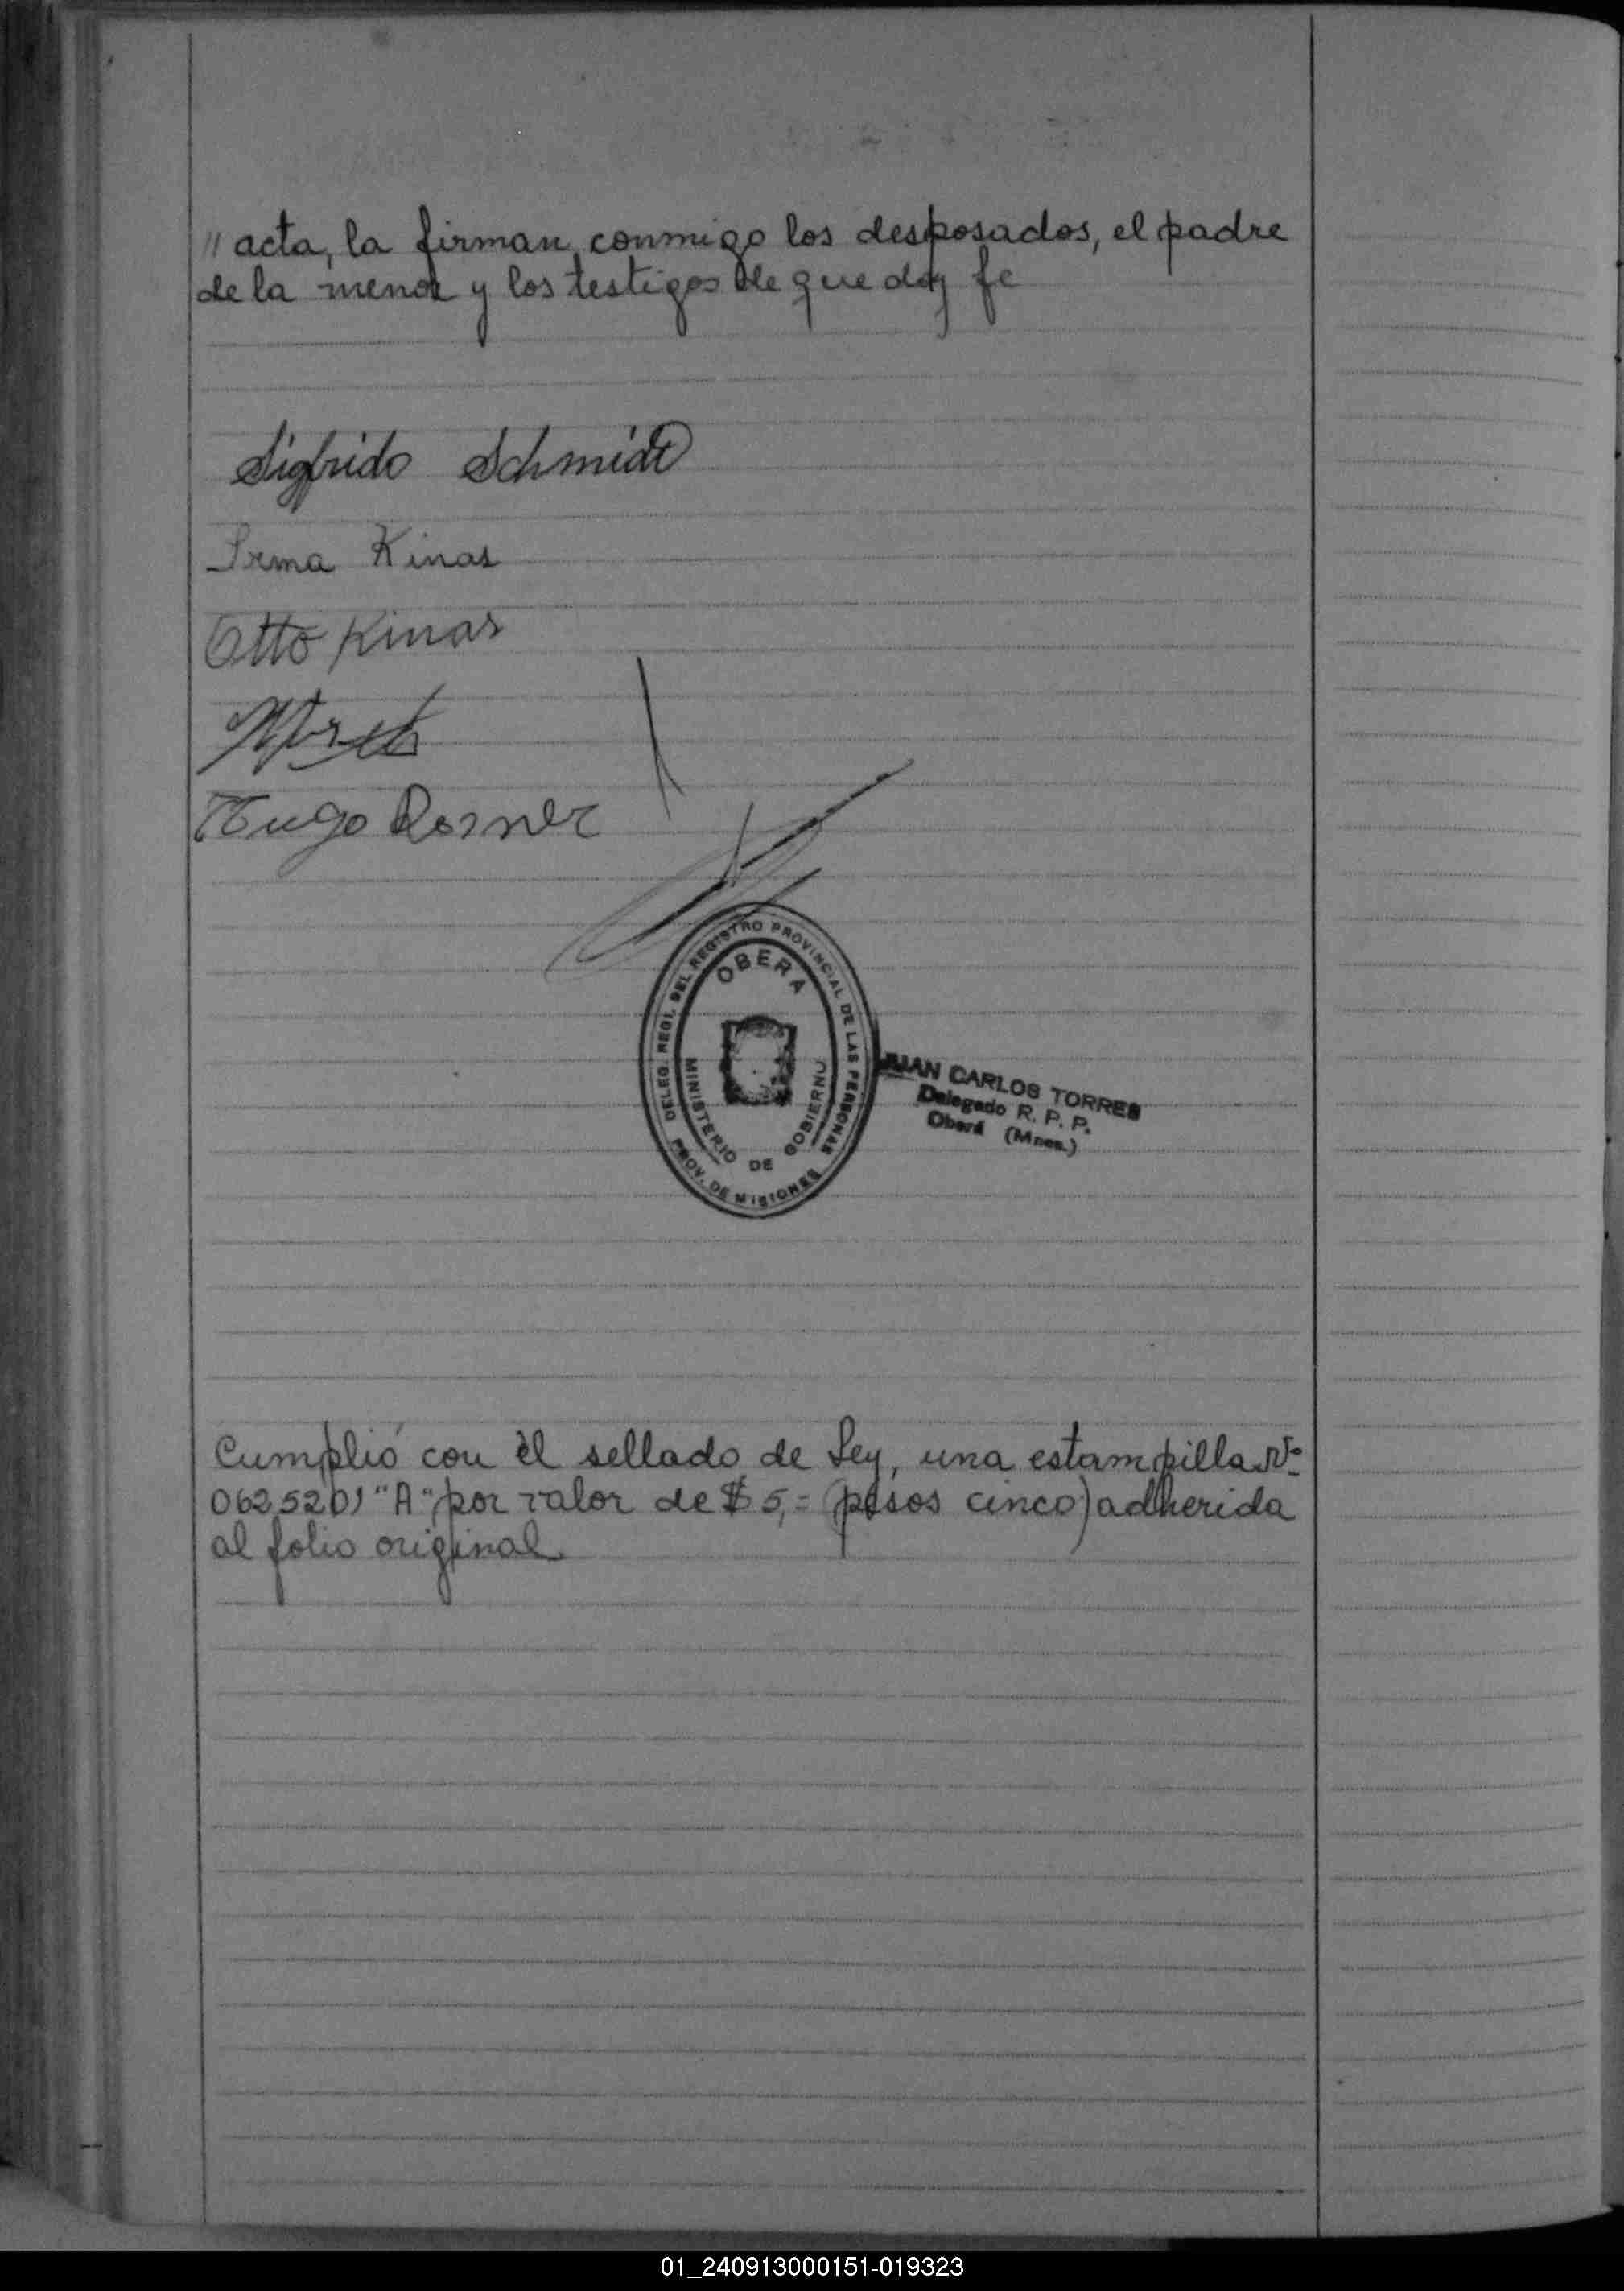 // acta, la firman conmigo los desposados, el padre
de la menor y los testigos de que doy fe
Sigfrido Schmidt
Irma Kinas
Otto Kinas
Hugo Rosner
DELEG. REGI. DEL REGISTRO PROVINCIAL DE LAS PERSONAS
OBERA
MINISTERIO DE GOBIERNO
PROV. DE MISIONES
JUAN CARLOS TORRES
Delegado R. P. P.
Oberá (Mnes.)
Cumplió con el sellado de Ley, una estampilla Nº
0625201 "A" por valor de $ 5,= (pesos cinco) adherida
al folio original
01_240913000151-019323